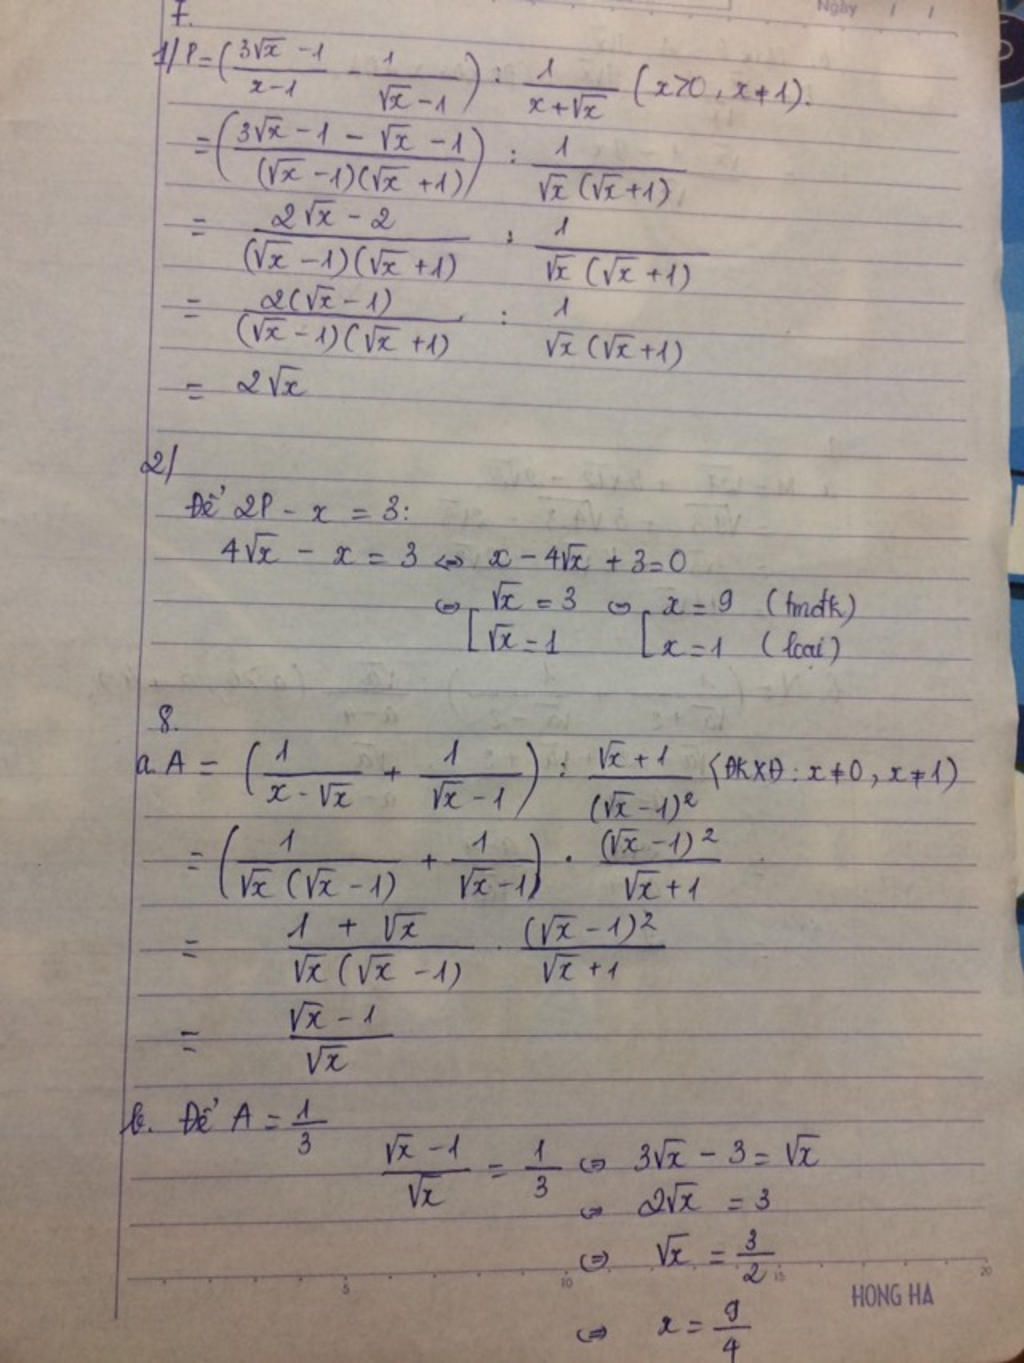 Ngày / /
7.
1/ P = (3√x - 1 / x - 1 - 1 / √x - 1) : 1 / x + √x (x>0, x≠1).
= (3√x - 1 - √x - 1 / (√x - 1)(√x + 1)) : 1 / √x(√x + 1)
= 2√x - 2 / (√x - 1)(√x + 1) : 1 / √x(√x + 1)
= 2(√x - 1) / (√x - 1)(√x + 1) : 1 / √x(√x + 1)
= 2√x
2/
Để 2P - x = 3:
4√x - x = 3 ⇔ x - 4√x + 3 = 0
⇔ [ √x = 3 ⇔ [ x = 9 (tmđk)
√x = 1 x = 1 (loại)
8.
a. A = (1 / x - √x + 1 / √x - 1) : √x + 1 / (√x - 1)² (ĐKXĐ: x≠0, x≠1)
= (1 / √x(√x - 1) + 1 / √x - 1) . (√x - 1)² / √x + 1
= 1 + √x / √x(√x - 1) . (√x - 1)² / √x + 1
= √x - 1 / √x
b. Để A = 1/3
√x - 1 / √x = 1/3 ⇔ 3√x - 3 = √x
⇔ 2√x = 3
⇔ √x = 3/2
5 10 15 20
HONG HA
⇔ x = 9/4